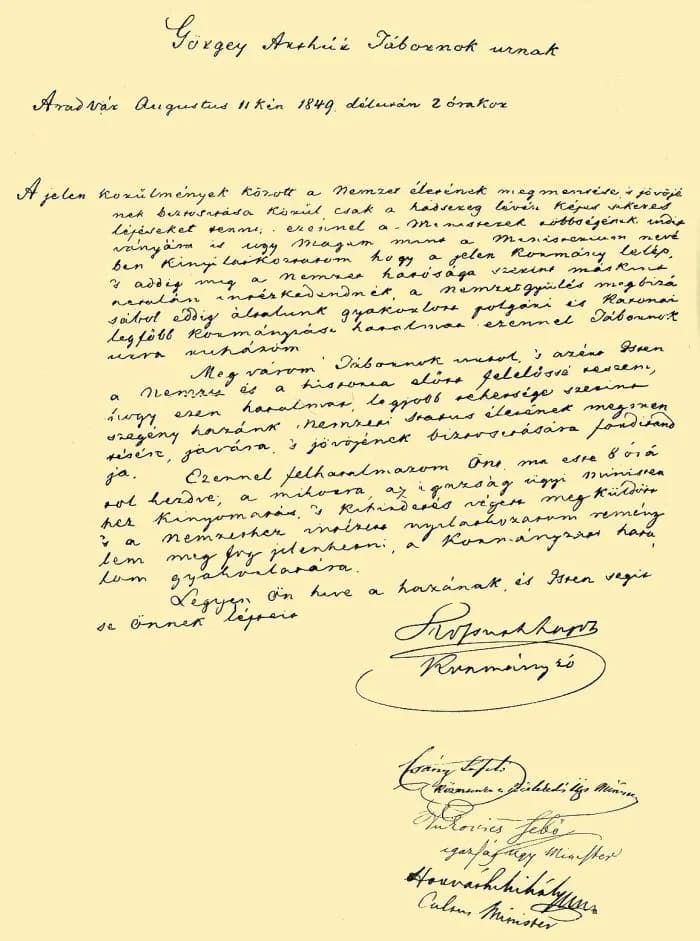 Görgey Arthúr Tábornok urnak
Aradvár Augustus 11kén 1849. délután 2 órakor
A jelen körülmények között a Nemzet életének megmentése, 's jövöjé
nek biztositása körül csak a hadsereg lévén képes sikeres
lépéseket tenni; ezennel a Ministerek többségének indit
ványára is ugy magam mint a Ministerium nevé
ben kinyilatkoztatom hogy a jelen kormány lelép,
's addig mig a nemzet hatósága szerint máskint
netalán intézkedendnék, a nemzetgyülés megbizá
sából eddig általunk gyakorlott polgári és katonai
legfőbb kormányzási hatalmat ezennel Tábornok
urra ruházom
Meg várom Tábornok urtol, 's azért Isten
a Nemzet és a historia előtt felelőssé teszem,
hogy ezen hatalmat, legjobb tehetsége szerint
szegény hazánk Nemzeti status életének megmen
tésére, javára, 's jövőjének biztositására forditand
ja.
Ezennel felhatalmazom Önt, ma este 8 órá
tol kezdve, a mikorra, az igazság ügyi Ministen
hez kinyomatás, 's kihirdetés végett meg küldött
's a nemzethez intézett nyilatkozatom remény
lem meg fog jelenhetni, a Kormányzat hata
lom gyakorlatára.
Legyen Ön hive a hazának, és Isten segit
se Önnek lépteit
Kossuth Lajos
Kormányzó
Csány László
közmunka s közlekedés ügy Minister
Vukovics Sebő
igazság ügy Minister
Horváth Mihály
Cultus Minister